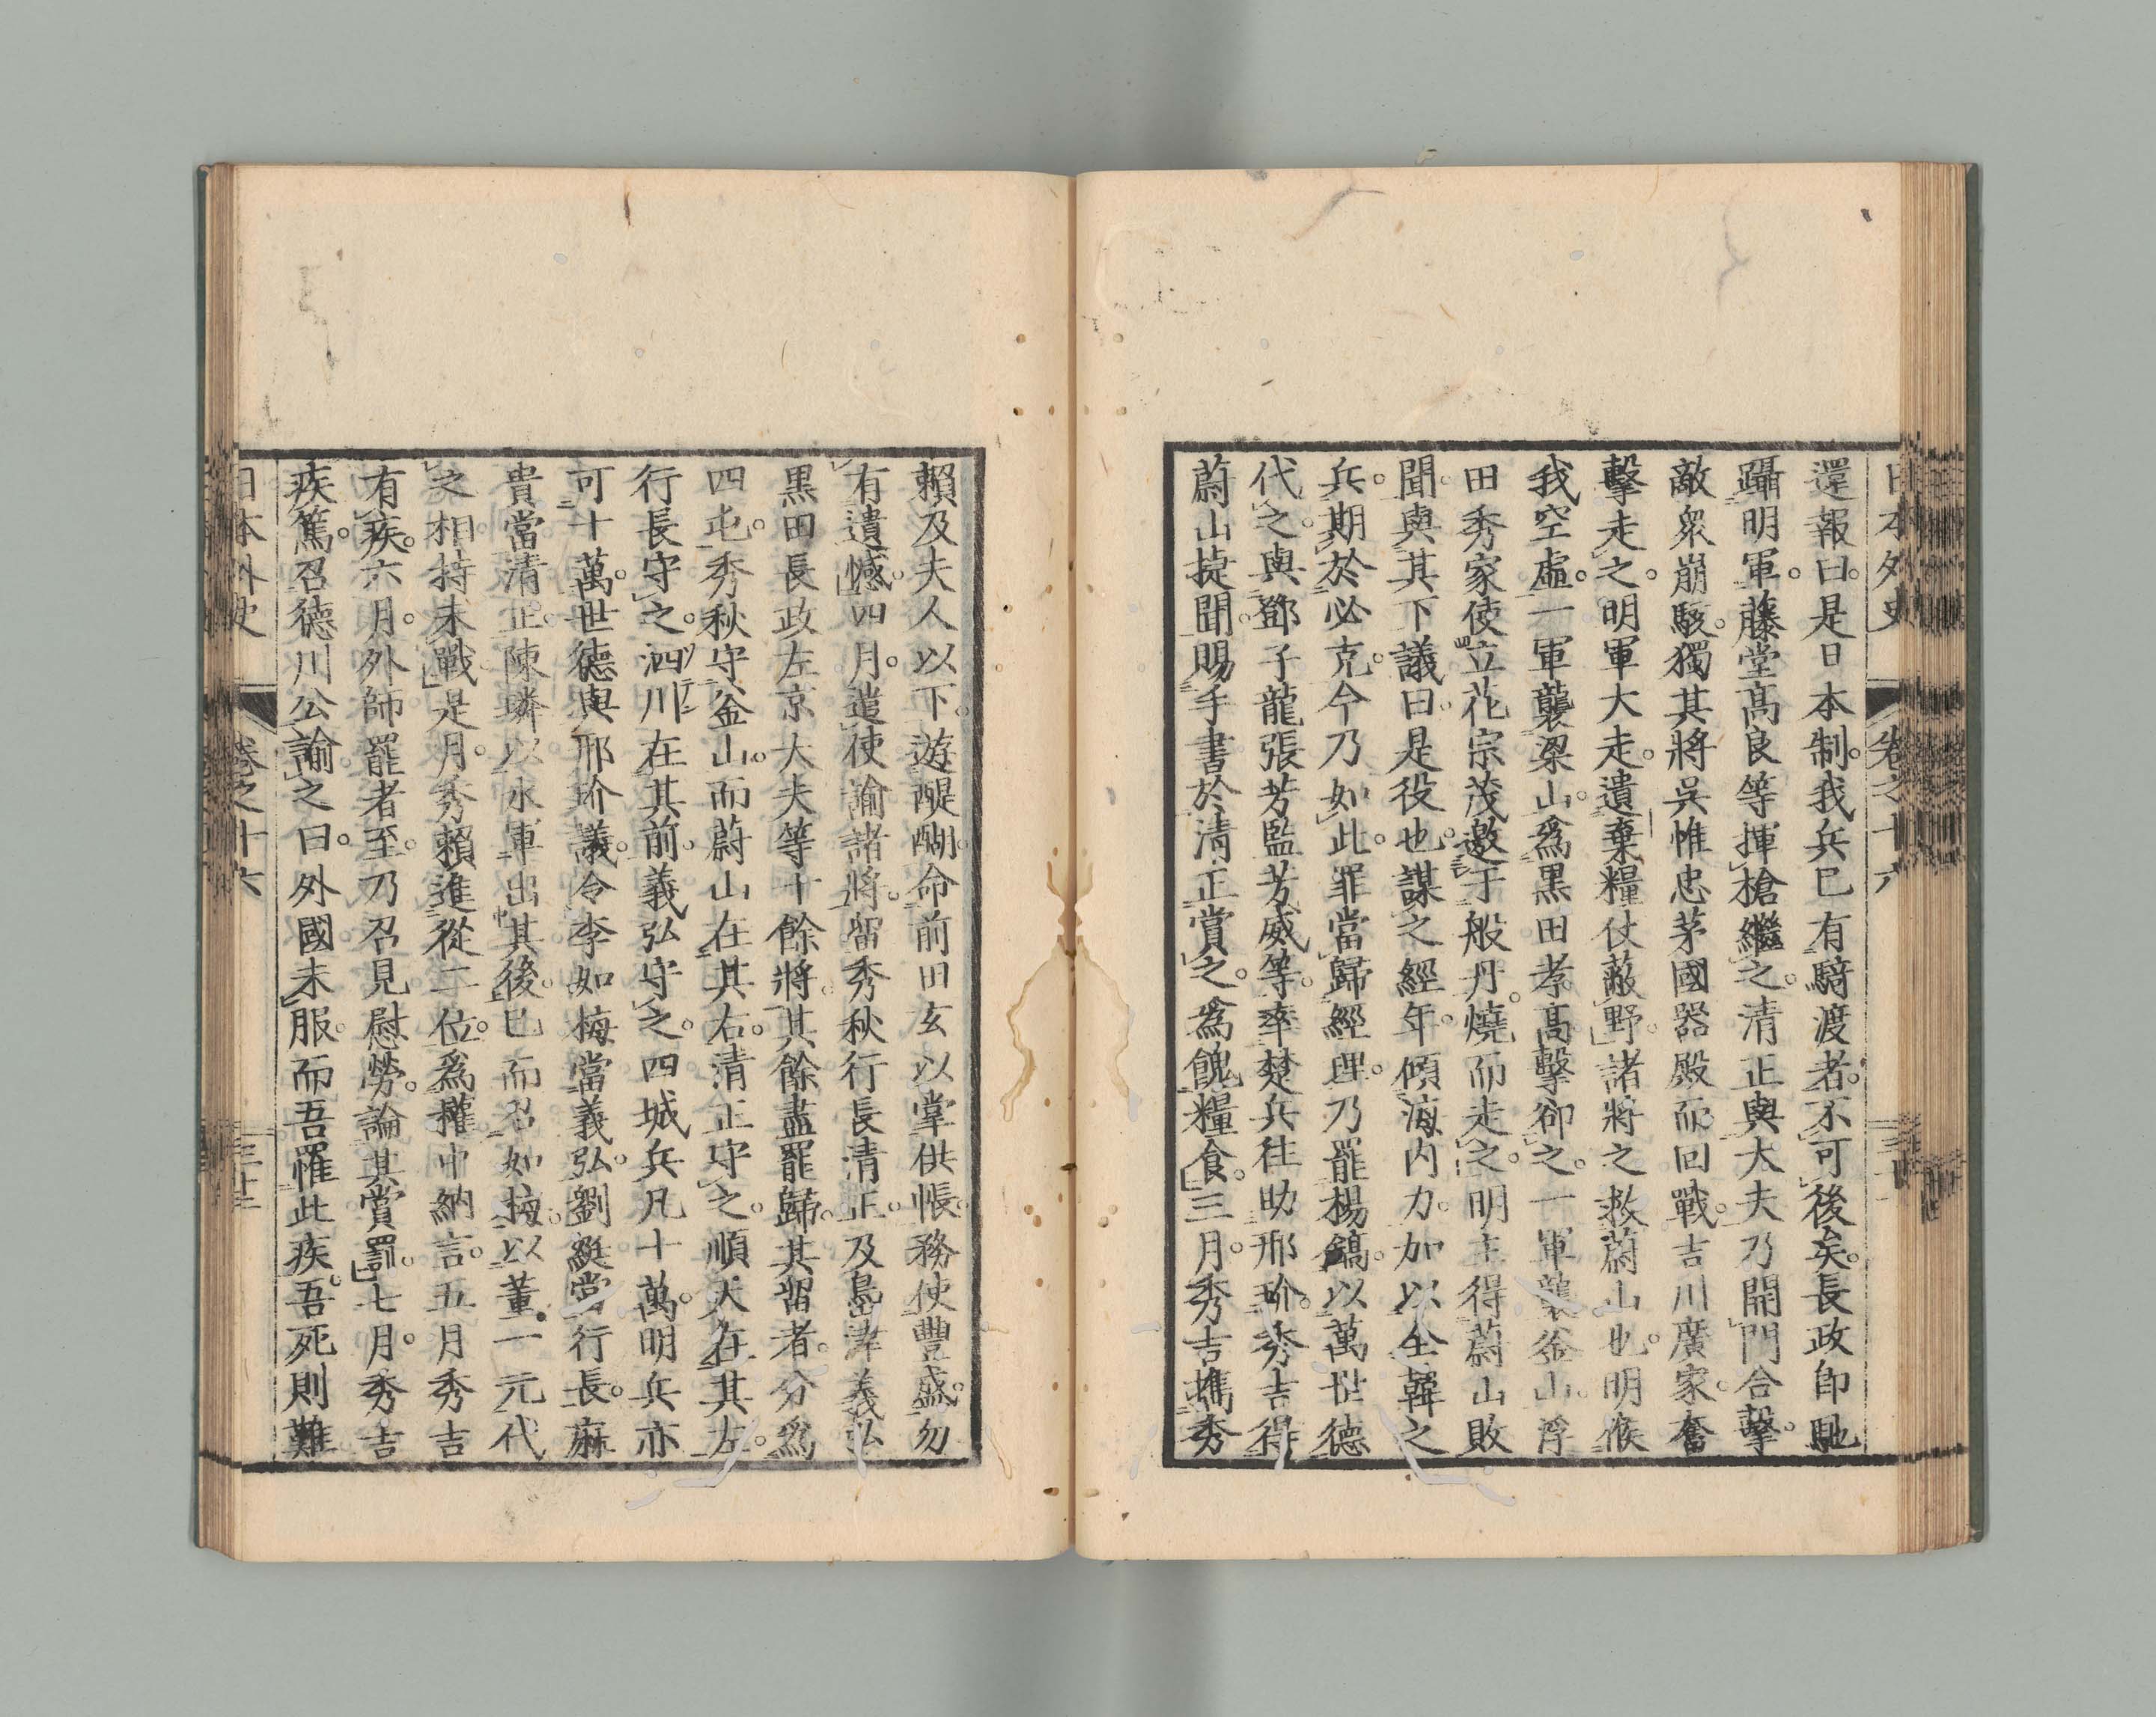 日本外史 卷之十六
還報曰。是日本制。我兵已有騎渡者。不可後矣。長政卽馳
躡明軍。藤堂高良等揮槍繼之。清正與大夫乃開門合擊。
敵衆崩駭。獨其將吳惟忠茅國器殿而回戰。吉川廣家。奮
擊走之。明軍大走。遺棄糧仗蔽野。諸將之救蔚山也。明候
我空虛。一軍襲梁山。爲黑田孝高擊卻之。一軍襲釜山。浮
田秀家使立花宗茂邀于般丹。燒而走之。明主得蔚山敗
聞。與其下議曰。是役也。謀之經年。傾海內力。加以全韓之
兵。期於必克。今乃如此。罪當歸經理。乃罷楊鎬。以萬世德
代之。與鄧子龍張芳監芳威等。率楚兵往助邢玠。秀吉得
蔚山捷聞。賜手書於清正賞之。爲餽糧食。三月。秀吉攜秀
賴及夫人以下。遊醍醐。命前田玄以掌供帳。務使豐盛。勿
有遺憾。四月。遣使諭諸將。留秀秋行長清正。及島津義弘
黑田長政左京大夫等十餘將。其餘盡罷歸。其留者。分爲
四屯。秀秋守釜山。而蔚山在其右。清正守之。順天在其左。
行長守之。泗川在其前。義弘守之。四城兵凡十萬。明兵亦
可十萬。世德與邢玠議。令李如梅當義弘。劉綎當行長。麻
貴當清正。陳璘以水軍出其後。已而召如梅。以董一元代
之。相持未戰。是月。秀賴進從二位。爲權中納言。五月秀吉
有疾。六月。外師罷者至。乃召見慰勞。論其賞罰。七月。秀吉
疾篤。召德川公諭之曰。外國未服。而吾罹此疾。吾死則難
日本外史 卷之十六 三十三